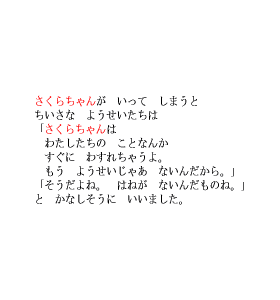 さくらちゃんが　いって　しまうと
ちいさな　ようせいたちは
「さくらちゃんは
　わたしたちの　ことなんか
　すぐに　わすれちゃうよ。
　もう　ようせいじゃあ　ないんだから。」
「そうだよね。　はねが　ないんだものね。」
と　かなしそうに　いいました。